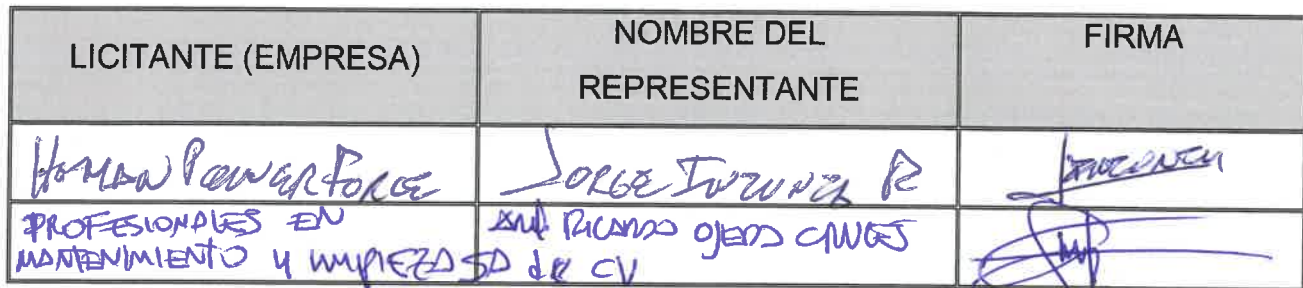 LICITANTE (EMPRESA)
NOMBRE DEL
REPRESENTANTE
FIRMA
HUMAN POWER FORCE
JORGE INZUNZA R
PROFESIONALES EN
MANTENIMIENTO Y LIMPIEZA SA de CV
RICARDO OJEDA